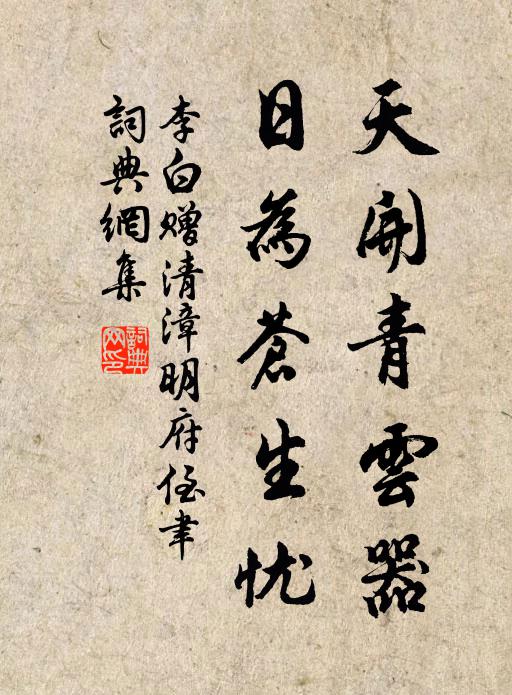 天開青雲器
日為蒼生忧
李白赠清漳明府侄聿
詞典網集
詞典
网印